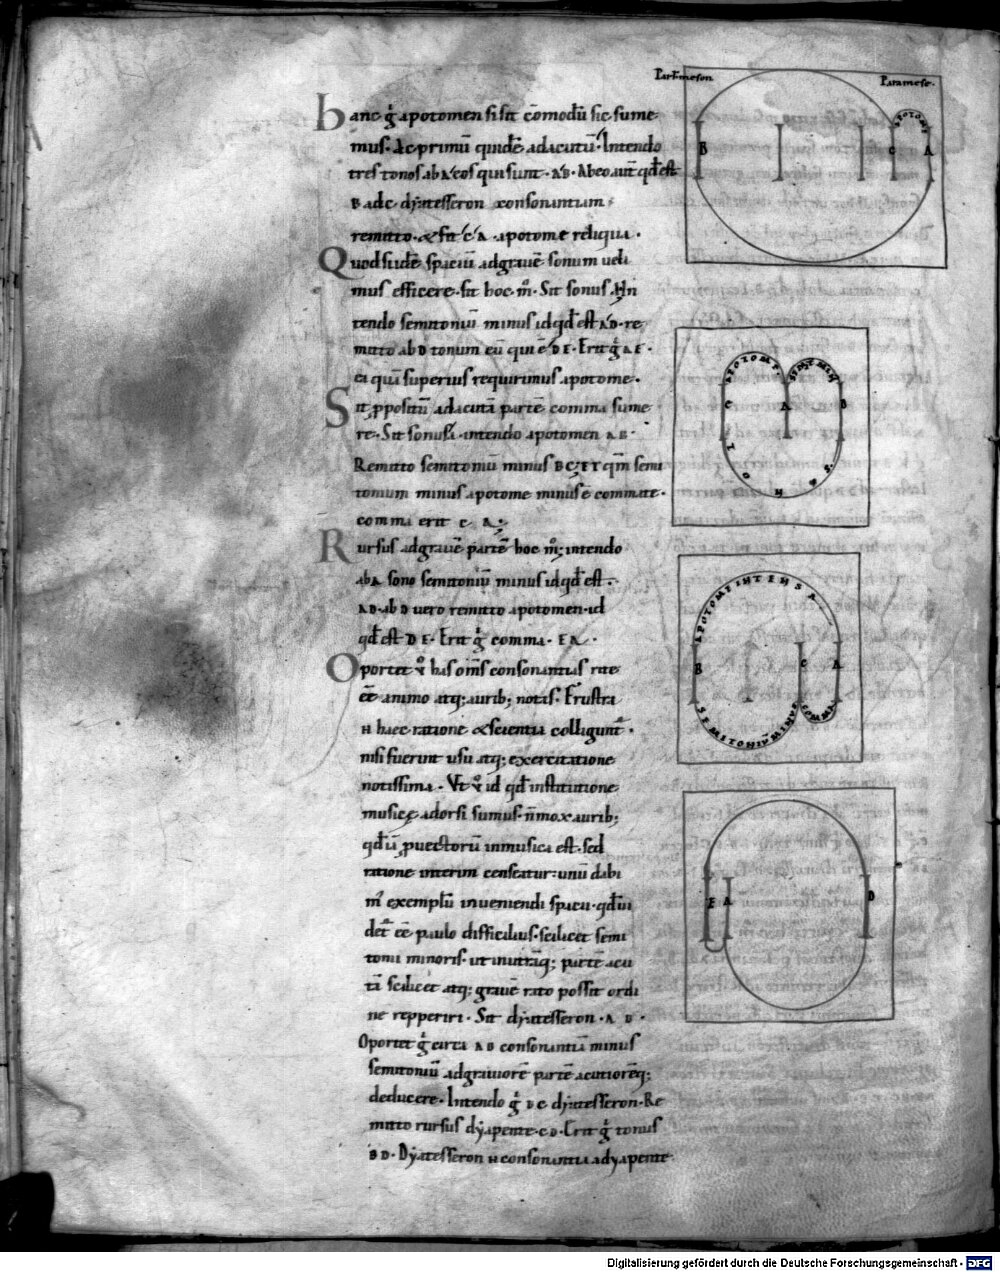 hanc g̊ apotomen si sit cōmodū sic sume
mus· Ac primū quidē ad acutū· Intendo
tres tonos ab A eos qui sunt· A B· Ab eo aut̄ qd̄ est
B ad c· dyatesseron consonantiam·
remitto· & fit c A· apotome reliqua·
Quod si idē spaciū ad grauē sonum ueli
mus efficere· sit hoc m̊· Sit sonus A In
tendo semitoniū minus id qd̄ est A D· re
mitto ab D tonum eū qui ē D E· Erit g̊ A E·
ei quā superius requirimus apotome·
Sit ꝓpositū ad acutā partē comma sume
re· Sit sonus A· intendo apotomen A B·
Remitto semitoniū minus B C· et qm̄ semi
tonium minus apotome minus ē commate·
comma erit c A·
Rursus ad grauē partē hoc m̊; intendo
ab A sono semitoniū minus id qd̄ est·
A D· ab D uero remitto apotomen· id
qd̄ est D E· Erit g̊ comma· E A·
Oportet ů has om̄s consonantias rite
eē animo atq; aurib; notas· Frustra
n̄ haec ratione & scientia colligunt̄·
nisi fuerint usu atq; exercitatione
notissima· Vt ů id qd̄ institutione
musicę adorsi sumus· n̄ mox aurib;
qd̄ iā ꝓuectorū in musica est· sed
ratione interim censeatur: unū dabi
m̄ exemplū inueniendi spacii· qd̄ ui
det̄ eē paulo difficilius· scilicet semi
tonii minoris· ut in utrāq; partē acu
tā scilicet atq; grauē rato possit ordi
ne repperiri· Sit dyatesseron· A B·
Oportet g̊ circa A B consonantiā minus
semitoniū ad grauiorē partē acutiorēq;
deducere· Intendo g̊ B C dyatesseron· Re
mitto rursus dyapente· C D· Erit g̊ tonus
B D· Dyatesseron n̄ consonantia a dyapente
Parameson
Paramese·
APOTOME
B C A
APOTOME·
SEMITMIN
C A D
TONUS·
APOTOME INTENSA
B C A
SEMITONIŪ MINUS
COMMA
E A D
Digitalisierung gefördert durch die Deutsche Forschungsgemeinschaft - DFG